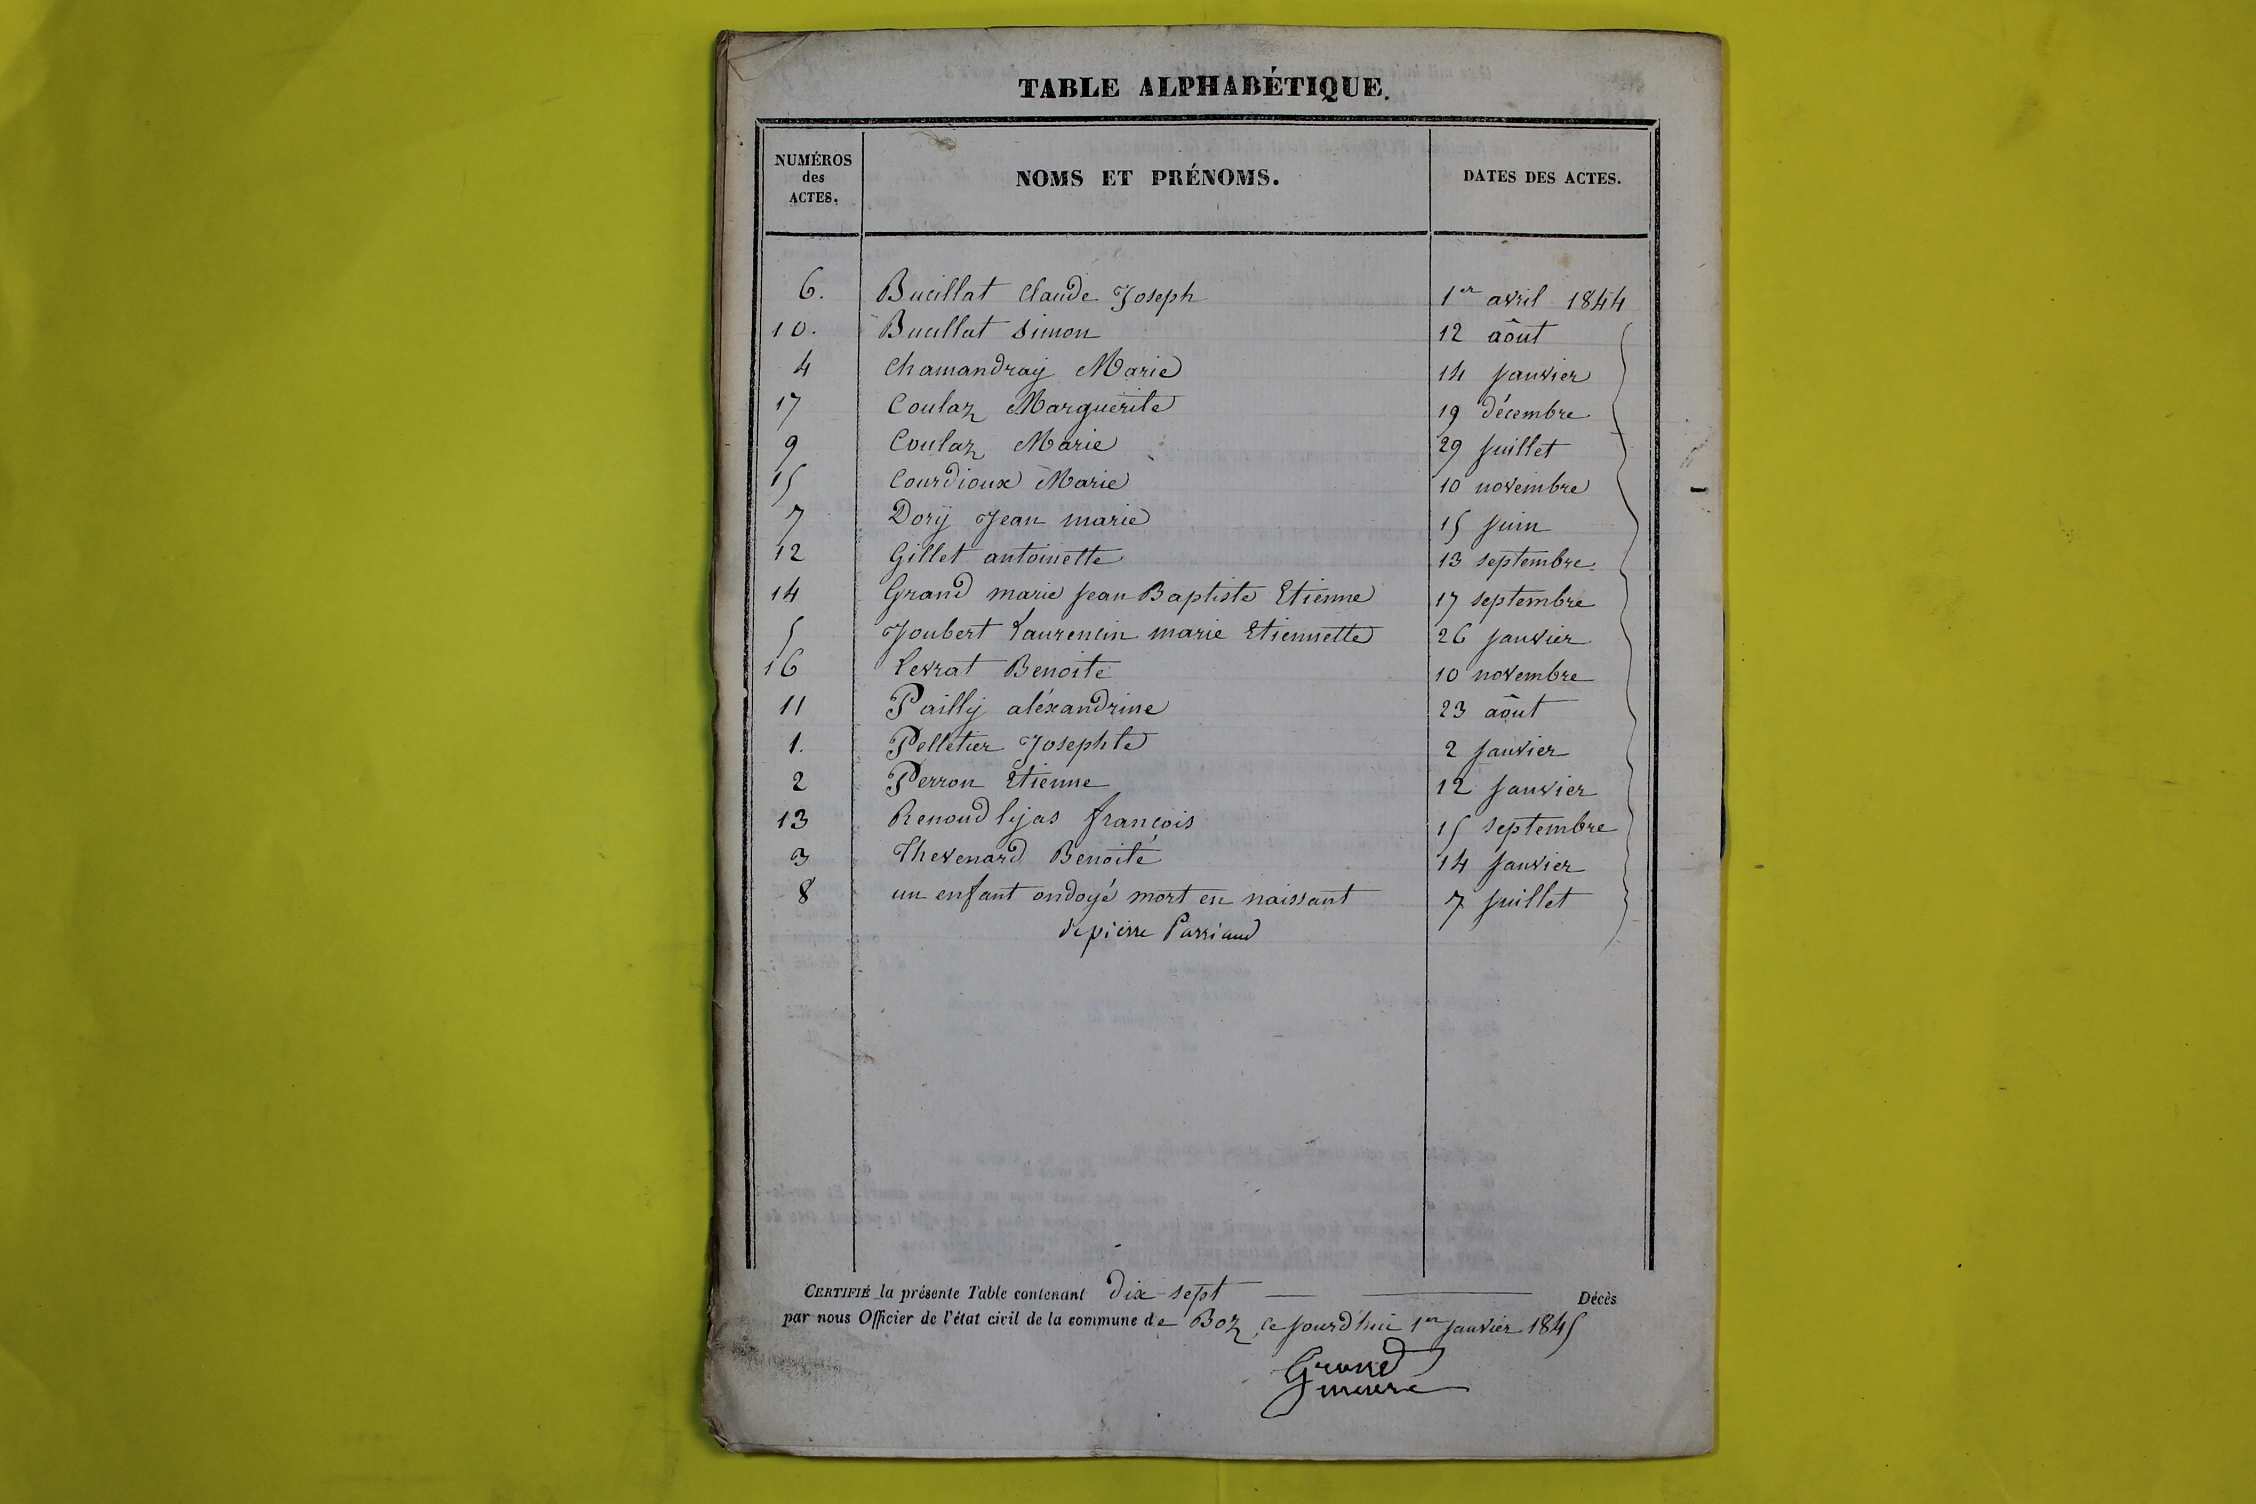 TABLE ALPHABÉTIQUE.
NUMÉROS des ACTES. NOMS ET PRÉNOMS. DATES DES ACTES.
6. Bucillat Claude Joseph 1er avril 1844
10. Bucillat Simon 12 aôut
4 Chamandraÿ Marie 14 janvier
17 Coulaz Marguerite 19 décembre
9 Coulaz Marie 29 juillet
15 Courdioux Marie 10 novembre
7 Dorÿ Jean marie 15 juin
12 Gillet antoinette 13 septembre
14 Grand marie jean Baptiste Etienne 17 septembre
5 Joubert Laurencin marie Etiennette 26 janvier
16 Levrat Benoite 10 novembre
11 Paillÿ aléxandrine 23 aôut
1. Pelletier Josephte 2 janvier
2 Perron Etienne 12 janvier
13 Renoud lyas françois 15 septembre
3 Thevenard Benoite 14 janvier
8 un enfant ondoyé mort en naissant 7 juillet
de pierre Parriaud
CERTIFIÉ la présente Table contenant dix-sept Décès
par nous Officier de l'état civil de la commune de Boz, ce jourd'hui 1er janvier 1845
Grand
maire